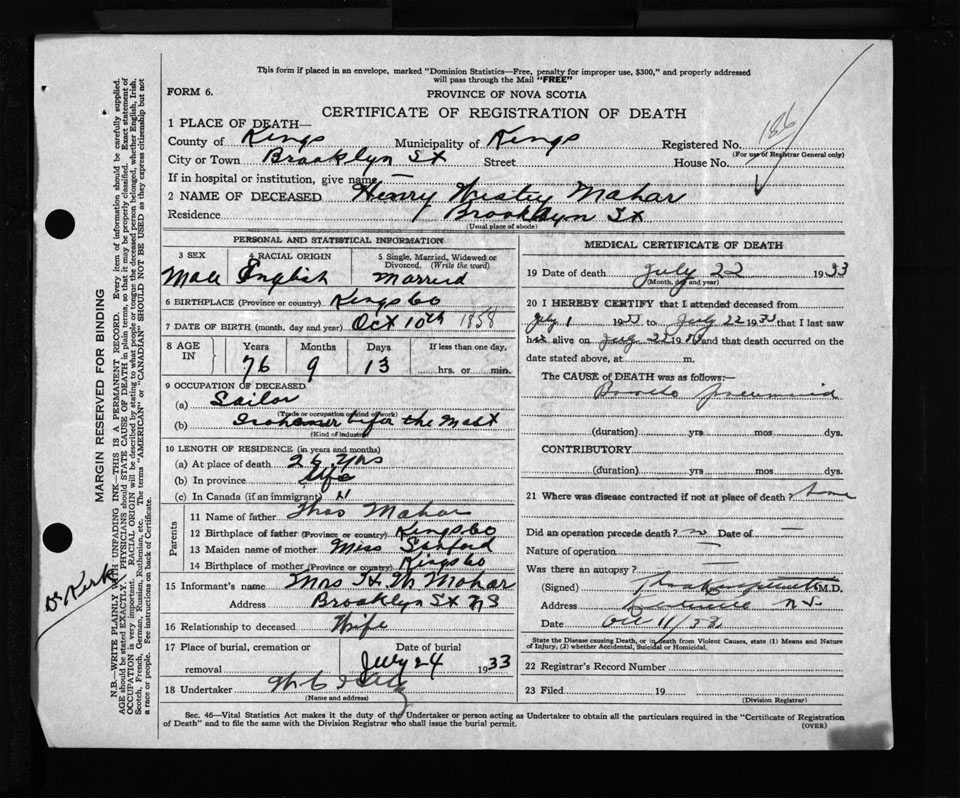 This form if placed in an envelope, marked "Dominion Statistics—Free, penalty for improper use, $300," and properly addressed
will pass through the Mail "FREE"
FORM 6.
PROVINCE OF NOVA SCOTIA
CERTIFICATE OF REGISTRATION OF DEATH
186
1 PLACE OF DEATH—
County of Kings Municipality of Kings Registered No.
(For use of Registrar General only)
City or Town Brooklyn St Street House No.
If in hospital or institution, give name —
2 NAME OF DECEASED Henry Mahar
Residence Brooklyn St
(Usual place of abode)
PERSONAL AND STATISTICAL INFORMATION
3 SEX 4 RACIAL ORIGIN 5 Single, Married, Widowed or
Divorced. (Write the word)
Male English Married
6 BIRTHPLACE (Province or country) Kings Co
7 DATE OF BIRTH (month, day and year) Oct 10th 1858
8 AGE IN Years Months Days If less than one day.
76 9 13 hrs. or min.
9 OCCUPATION OF DECEASED
(a) Sailor
(Trade or occupation or kind of work)
(b) the Mast
(Kind of industry)
10 LENGTH OF RESIDENCE (in years and months)
(a) At place of death 26 yrs
(b) In province life
(c) In Canada (if an immigrant) "
Parents
11 Name of father Thos Mahar
12 Birthplace of father (Province or country) Kings Co
13 Maiden name of mother Miss Sanford
14 Birthplace of mother (Province or country) Kings Co
15 Informant's name Mrs H. M. Mahar
Address Brooklyn St NS
16 Relationship to deceased Wife
17 Place of burial, cremation or Date of burial
removal July 24 1933
18 Undertaker
(Name and address)
MEDICAL CERTIFICATE OF DEATH
19 Date of death July 22 1933
(Month, day and year)
20 I HEREBY CERTIFY that I attended deceased from
July 1 1933 to July 22 1933 that I last saw
him alive on July 22 19 and that death occurred on the
date stated above, at m.
The CAUSE of DEATH was as follows:—
Broncho pneumonia
(duration) yrs mos dys.
CONTRIBUTORY
(duration) yrs mos dys.
21 Where was disease contracted if not at place of death? Home
Did an operation precede death? no Date of —
Nature of operation —
Was there an autopsy? —
(Signed) M.D.
Address N.S.
Date 11/33
State the Disease causing Death, or in death from Violent Causes, state (1) Means and Nature
of Injury, (2) whether Accidental, Suicidal or Homicidal.
22 Registrar's Record Number
23 Filed 19
(Division Registrar)
Sec. 46—Vital Statistics Act makes it the duty of the Undertaker or person acting as Undertaker to obtain all the particulars required in the "Certificate of Registration
of Death" and to file the same with the Division Registrar who shall issue the burial permit.
(OVER)
MARGIN RESERVED FOR BINDING
N.B.—WRITE PLAINLY WITH UNFADING INK—THIS IS A PERMANENT RECORD. Every item of information should be carefully supplied.
AGE should be stated EXACTLY. PHYSICIANS should STATE CAUSE OF DEATH in plain terms, so that it may be properly classified. Exact statement of
OCCUPATION is very important. RACIAL ORIGIN will be described by stating to what people or tongue the deceased person belonged, whether English, Irish,
Scotch, French, German, Russian, Ruthenian, etc. The terms "AMERICAN" or "CANADIAN" SHOULD NOT BE USED as they express citizenship but not
a race or people. See instructions on back of Certificate.
Dr Kirk